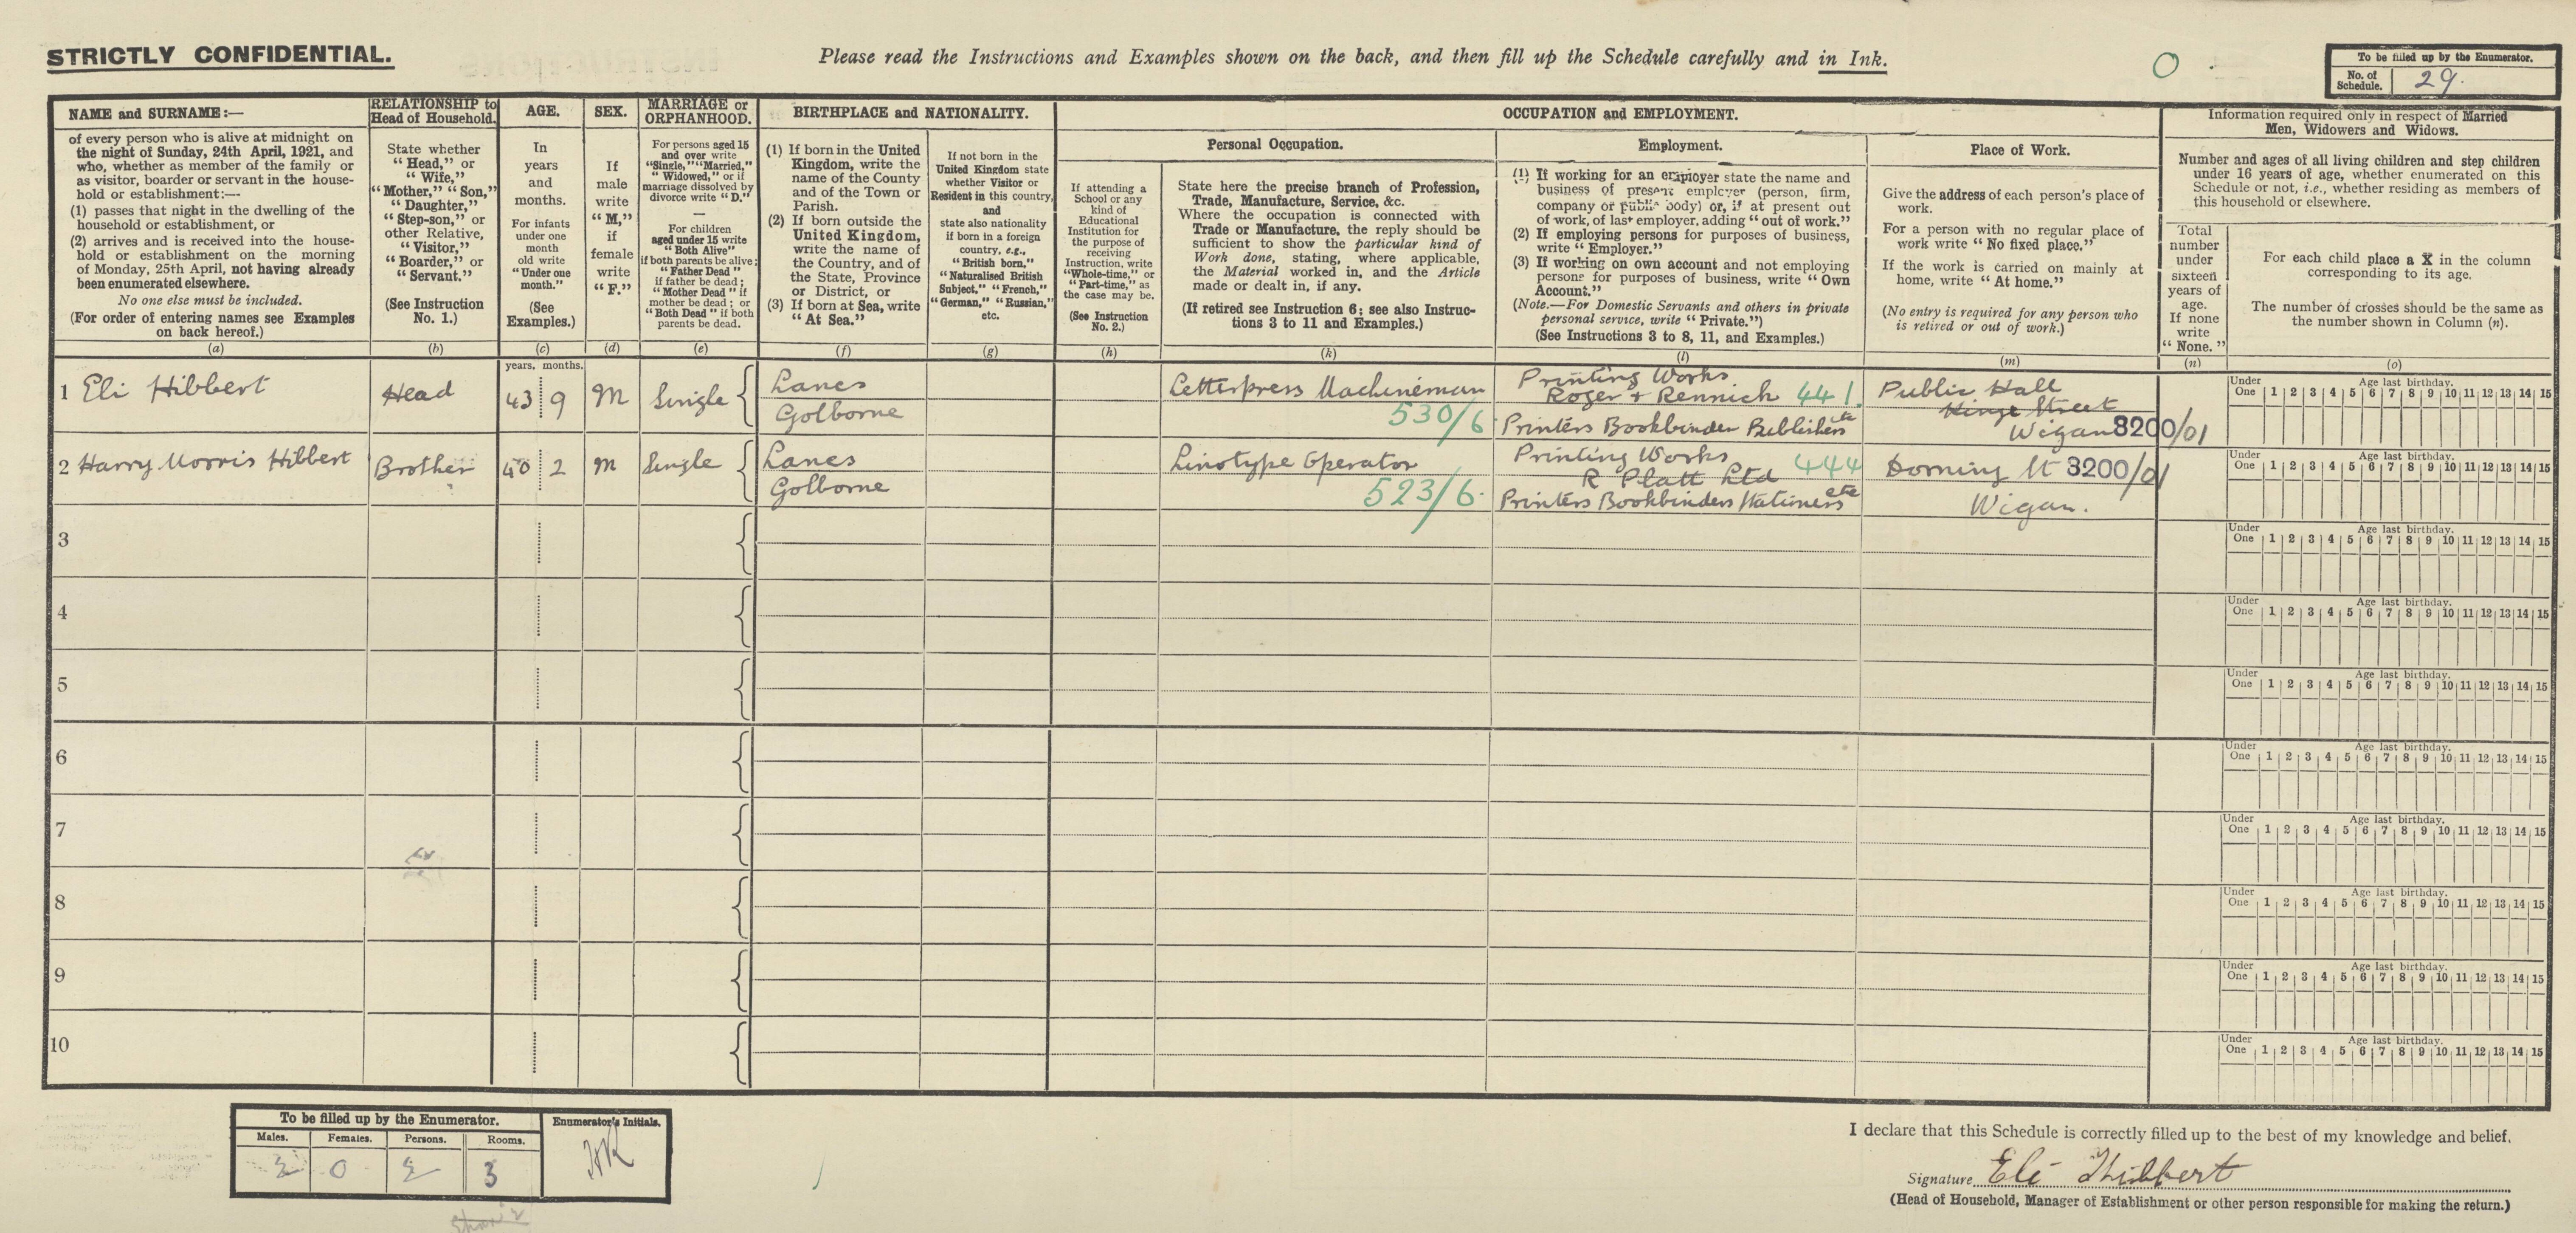 STRICTLY CONFIDENTIAL.
Please read the Instructions and Examples shown on the back, and then fill up the Schedule carefully and in Ink.
O
To be filled up by the Enumerator.
No. of Schedule. 29.
NAME and SURNAME:—
of every person who is alive at midnight on
the night of Sunday, 24th April, 1921, and
who, whether as member of the family or
as visitor, boarder or servant in the house-
hold or establishment:—
(1) passes that night in the dwelling of the
household or establishment, or
(2) arrives and is received into the house-
hold or establishment on the morning
of Monday, 25th April, not having already
been enumerated elsewhere.
No one else must be included.
(For order of entering names see Examples
on back hereof.)
(a)
RELATIONSHIP to
Head of Household.
State whether
"Head," or
"Wife,"
"Mother," "Son,"
"Daughter,"
"Step-son," or
other Relative,
"Visitor,"
"Boarder," or
"Servant."
(See Instruction
No. 1.)
(b)
AGE.
In
years
and
months.
For infants
under one
month
old write
"Under one
month."
(See
Examples.)
(c)
SEX.
If
male
write
"M,"
if
female
write
"F."
(d)
MARRIAGE or
ORPHANHOOD.
For persons aged 15
and over write
"Single," "Married,"
"Widowed," or if
marriage dissolved by
divorce write "D."
—
For children
aged under 15 write
"Both Alive"
if both parents be alive;
"Father Dead"
if father be dead;
"Mother Dead" if
mother be dead; or
"Both Dead" if both
parents be dead.
(e)
BIRTHPLACE and NATIONALITY.
(1) If born in the United
Kingdom, write the
name of the County
and of the Town or
Parish.
(2) If born outside the
United Kingdom,
write the name of
the Country, and of
the State, Province
or District, or
(3) If born at Sea, write
"At Sea."
(f)
If not born in the
United Kingdom state
whether Visitor or
Resident in this country,
and
state also nationality
if born in a foreign
country, e.g.,
"British born,"
"Naturalised British
Subject," "French,"
"German," "Russian,"
etc.
(g)
OCCUPATION and EMPLOYMENT.
Personal Occupation.
If attending a
School or any
kind of
Educational
Institution for
the purpose of
receiving
Instruction, write
"Whole-time," or
"Part-time," as
the case may be.
(See Instruction
No. 2.)
(h)
State here the precise branch of Profession,
Trade, Manufacture, Service, &c.
Where the occupation is connected with
Trade or Manufacture, the reply should be
sufficient to show the particular kind of
Work done, stating, where applicable,
the Material worked in, and the Article
made or dealt in, if any.
(If retired see Instruction 6; see also Instruc-
tions 3 to 11 and Examples.)
(k)
Employment.
(1) If working for an employer state the name and
business of present employer (person, firm,
company or public body) or, if at present out
of work, of last employer, adding "out of work."
(2) If employing persons for purposes of business,
write "Employer."
(3) If working on own account and not employing
persons for purposes of business, write "Own
Account."
(Note.—For Domestic Servants and others in private
personal service, write "Private.")
(See Instructions 3 to 8, 11, and Examples.)
(l)
Place of Work.
Give the address of each person's place of
work.
For a person with no regular place of
work write "No fixed place."
If the work is carried on mainly at
home, write "At home."
(No entry is required for any person who
is retired or out of work.)
(m)
Information required only in respect of Married
Men, Widowers and Widows.
Number and ages of all living children and step children
under 16 years of age, whether enumerated on this
Schedule or not, i.e., whether residing as members of
this household or elsewhere.
Total
number
under
sixteen
years of
age.
If none
write
"None."
(n)
For each child place a X in the column
corresponding to its age.
The number of crosses should be the same as
the number shown in Column (n).
(o)
years. months.
1 Eli Hibbert
Head
43 9
M
Single
Lancs
Golborne
Letterpress Machineman
530/6
Printing Works
Roger & Rennich 441.
Printers Bookbinder Publishers etc
Public Hall
Kings Street
Wigan 8200/01
Under One 1 2 3 4 5 6 7 8 9 10 11 12 13 14 15
Age last birthday.
2 Harry Morris Hibbert
Brother
40 2
M
Single
Lancs
Golborne
Linotype Operator
523/6.
Printing Works 444
R Platt Ltd
Printers Bookbinders Stationers etc
Dorning St 8200/01
Wigan.
Under One 1 2 3 4 5 6 7 8 9 10 11 12 13 14 15
Age last birthday.
3
Under One 1 2 3 4 5 6 7 8 9 10 11 12 13 14 15
Age last birthday.
4
Under One 1 2 3 4 5 6 7 8 9 10 11 12 13 14 15
Age last birthday.
5
Under One 1 2 3 4 5 6 7 8 9 10 11 12 13 14 15
Age last birthday.
6
Under One 1 2 3 4 5 6 7 8 9 10 11 12 13 14 15
Age last birthday.
7
Under One 1 2 3 4 5 6 7 8 9 10 11 12 13 14 15
Age last birthday.
8
Under One 1 2 3 4 5 6 7 8 9 10 11 12 13 14 15
Age last birthday.
9
Under One 1 2 3 4 5 6 7 8 9 10 11 12 13 14 15
Age last birthday.
10
Under One 1 2 3 4 5 6 7 8 9 10 11 12 13 14 15
Age last birthday.
To be filled up by the Enumerator.
Males. Females. Persons. Rooms.
2 0 2 3
Enumerator's Initials.
I declare that this Schedule is correctly filled up to the best of my knowledge and belief.
Signature Eli Hibbert
(Head of Household, Manager of Establishment or other person responsible for making the return.)